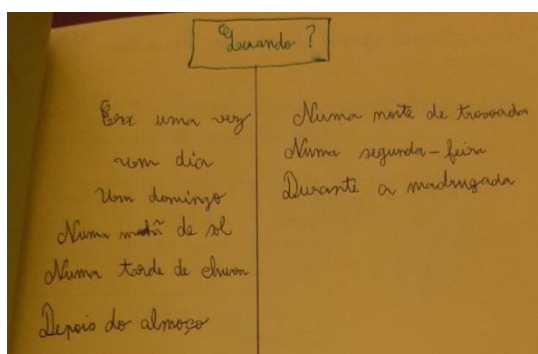 Quando?
Era uma vez
um dia
Um domingo
Numa manhã de sol
Numa tarde de chuva
Depois do almoço
Numa noite de trovoada
Numa segunda-feira
Durante a madrugada